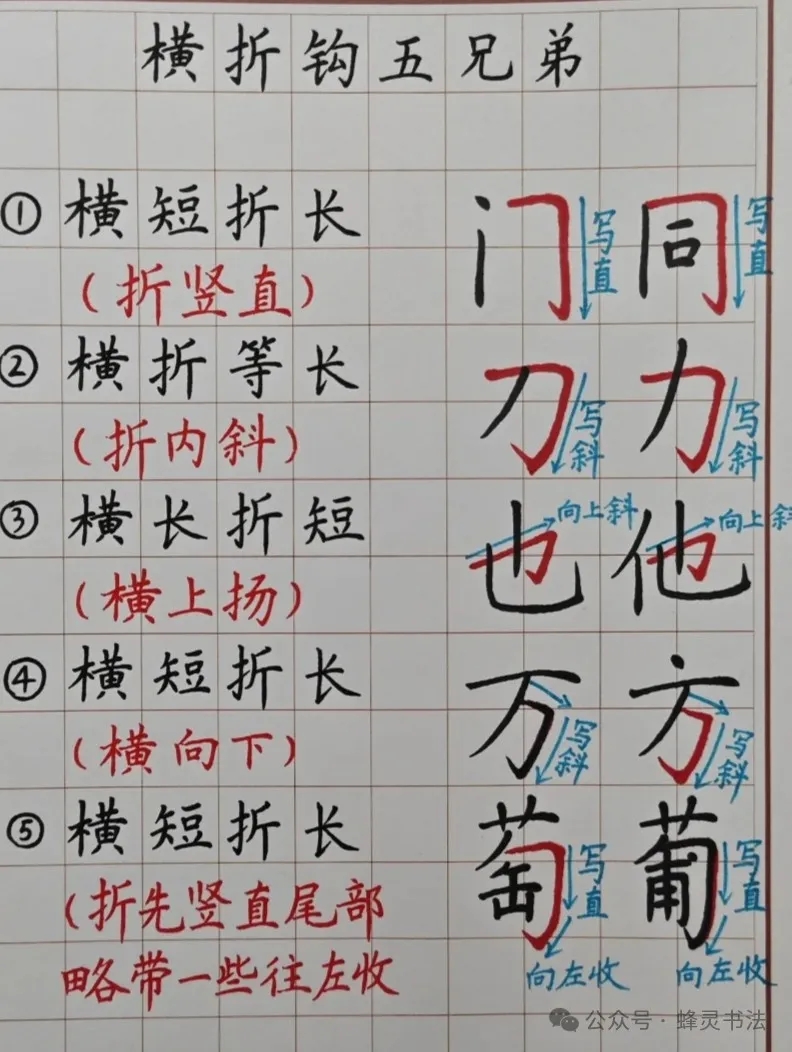 横折钩五兄弟
①横短折长 门 写直 同 写直
(折竖直)
②横折等长 刀 写斜 力 写斜
(折内斜)
③横长折短 也 向上斜 他 向上斜
(横上扬)
④横短折长 万 写斜 方 写斜
(横向下)
⑤横短折长 萄 写直 葡 写直
(折先竖直尾部
略带一些往左收 向左收 向左收
公众号·蜂灵书法